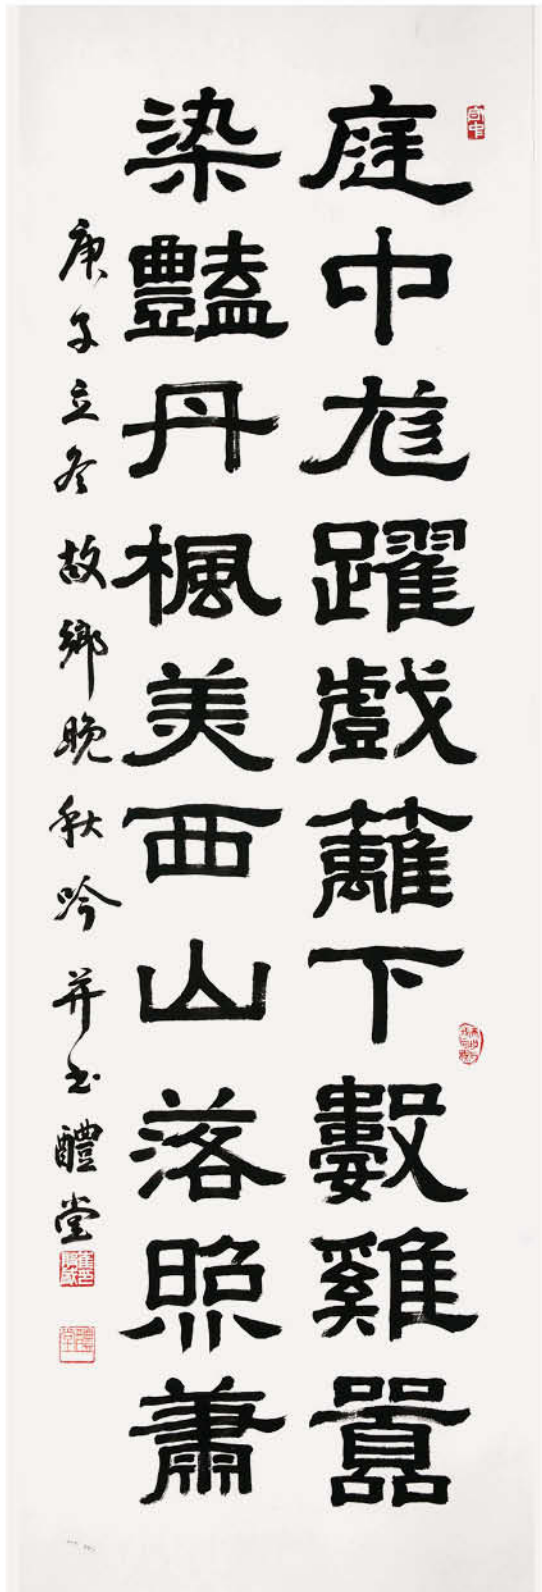 庭中尨躍戲籬下數雞囂
染豔丹楓美西山落照蕭
庚子立冬故鄉晚秋吟并書醴堂